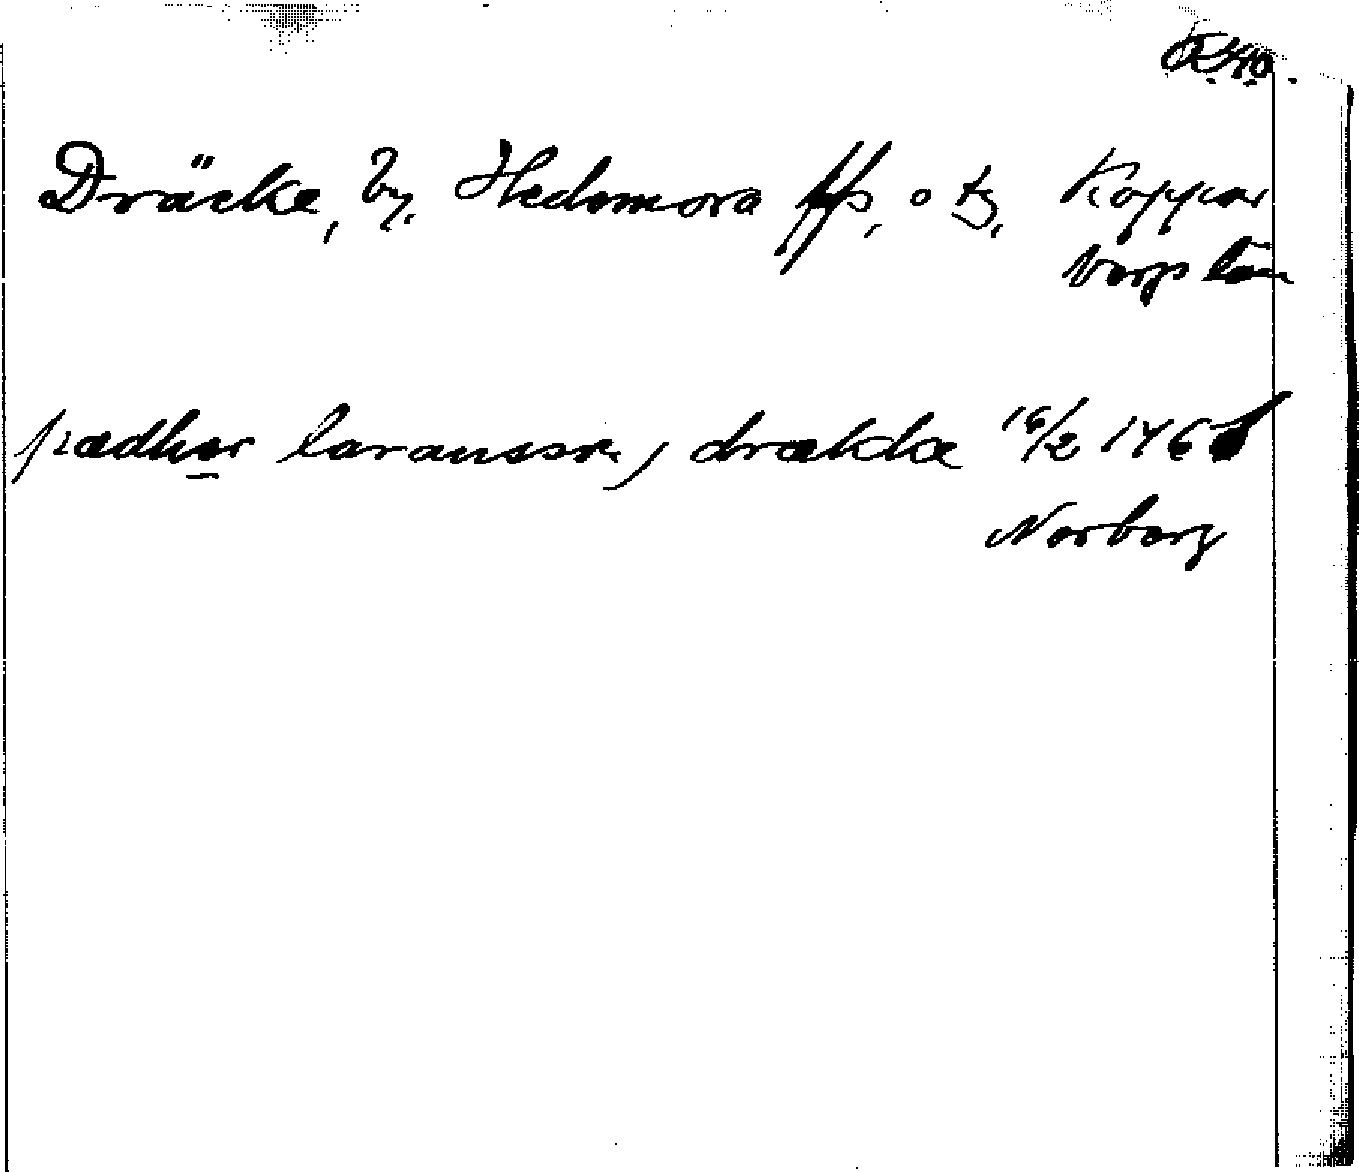 Dräcke, by, Hedemora sn, o tg, Koppar
bergs län
pædhær laransson, drække 16/2 146
Norberg